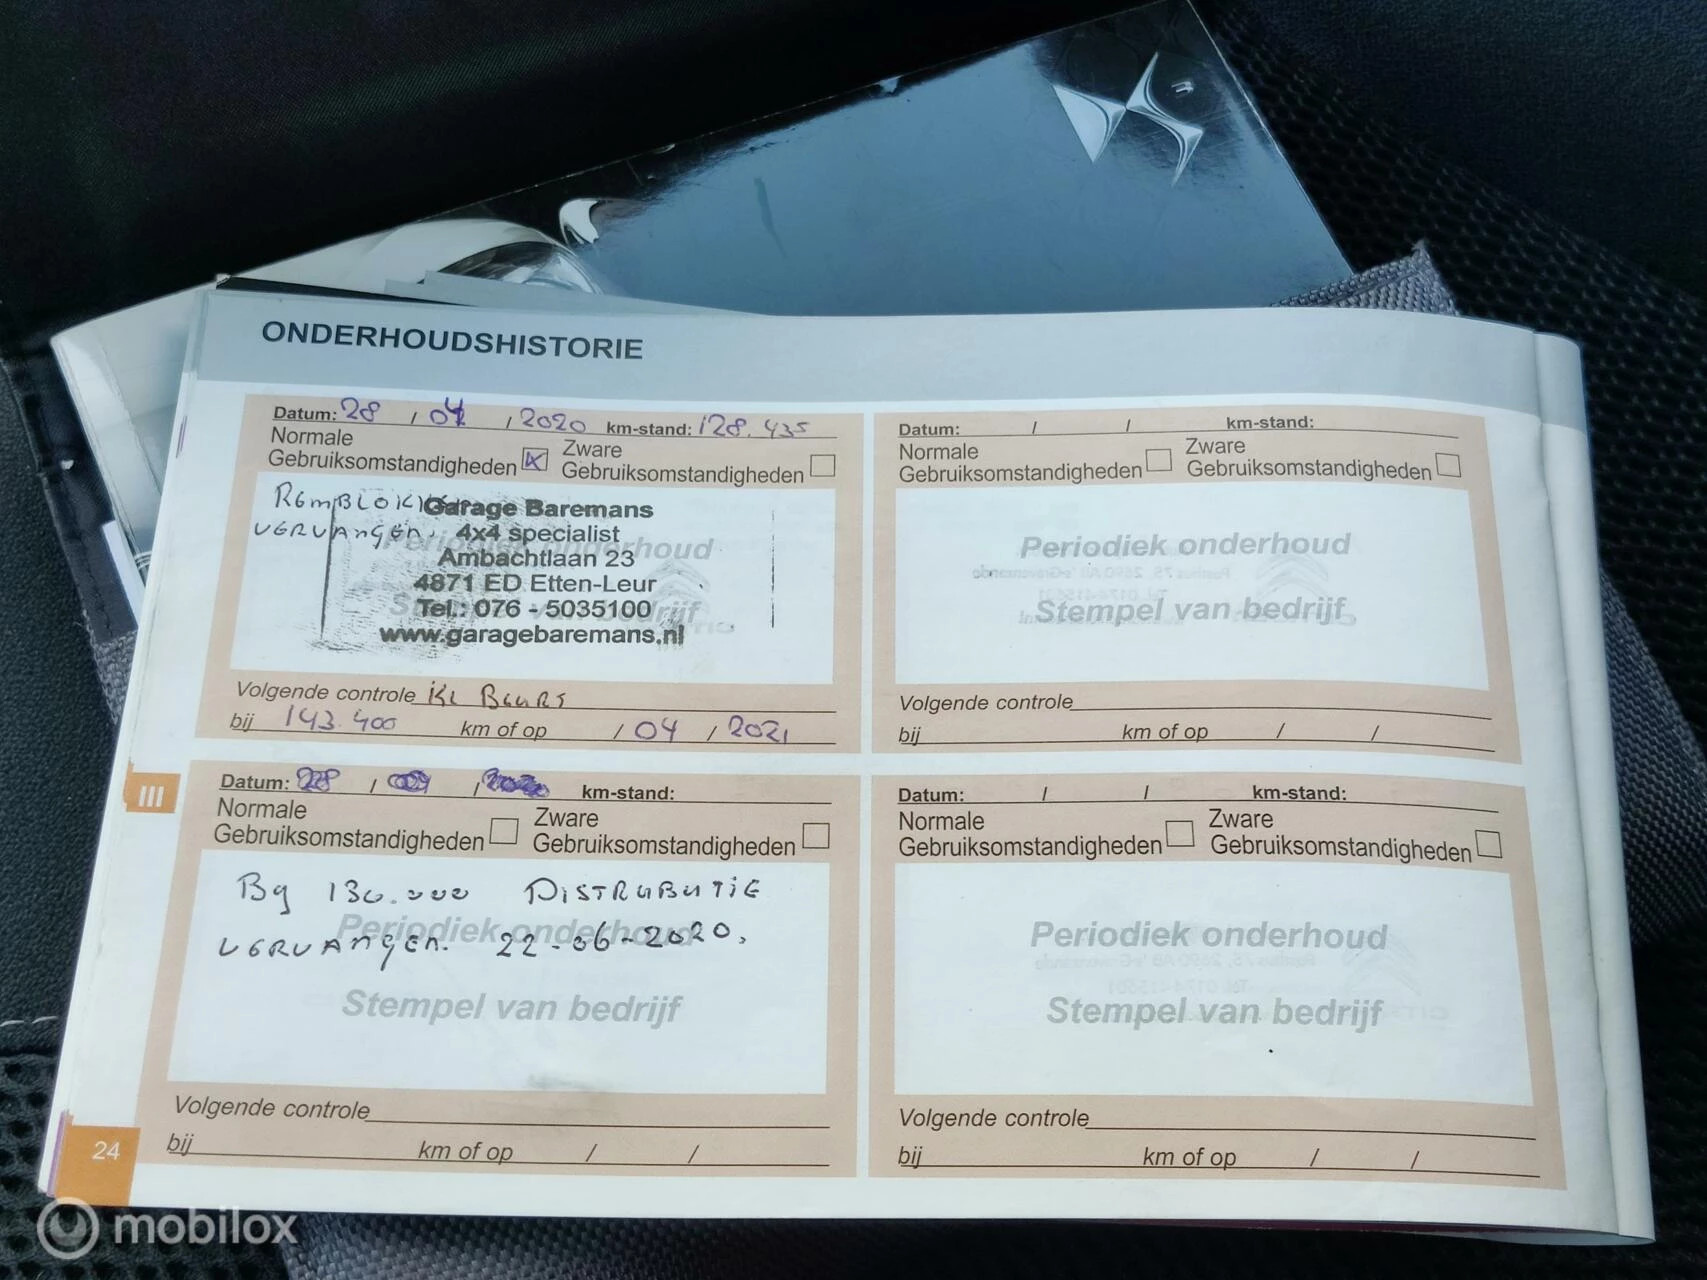 ONDERHOUDSHISTORIE
Datum: 28 / 04 / 2020 km-stand: 128.435
Normale
Gebruiksomstandigheden
Zware
Gebruiksomstandigheden
REMBLOKKEN
VERVANGEN.
Garage Baremans
4x4 specialist
Ambachtlaan 23
4871 ED Etten-Leur
Tel.: 076 - 5035100
www.garagebaremans.nl
Periodiek onderhoud
Stempel van bedrijf
Volgende controle KL BEURT
bij 143.400 km of op / 04 / 2021
Datum: / / km-stand:
Normale
Gebruiksomstandigheden
Zware
Gebruiksomstandigheden
Periodiek onderhoud
Stempel van bedrijf
Volgende controle
bij km of op / /
III
Datum: 28 / / km-stand:
Normale
Gebruiksomstandigheden
Zware
Gebruiksomstandigheden
By 130.000 DISTRUBUTIE
VERVANGEN. 22-06-2020.
Periodiek onderhoud
Stempel van bedrijf
Volgende controle
bij km of op / /
Datum: / / km-stand:
Normale
Gebruiksomstandigheden
Zware
Gebruiksomstandigheden
Periodiek onderhoud
Stempel van bedrijf
Volgende controle
bij km of op / /
24
mobilox